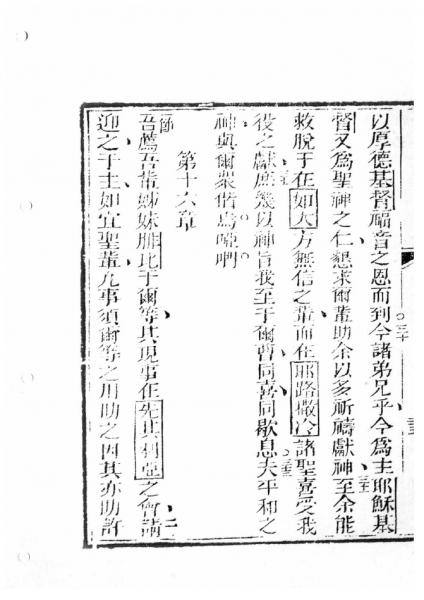 以厚德基督福音之恩而到三十今諸弟兄乎今為主耶穌基
督又為聖神之仁懇求爾輩助余以多祈禱獻神三一至余能
救脫于在如大方無信之輩而在耶路撒冷諸聖喜受我
役之獻三二庶幾以神旨我至于爾曹同喜同歇息三三夫平和之
神與爾眾偕焉啞們
第十六章
節吾薦吾輩姊妹腓比于爾等其現事在先其利亞之會二請
迎之于主如宜聖輩凡事須爾等之用助之因其亦助許